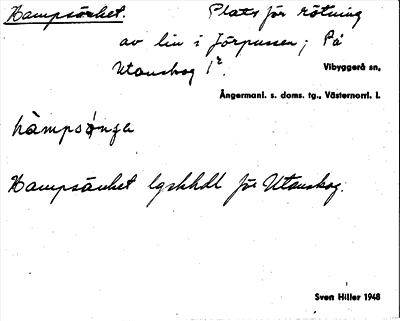 Hampsänket. Plats för rötning
av lin i Jörpussen; På
Utanskog 1².
Vibyggerå sn,
Ångermanl. s. doms. tg., Västernorrl. l.
hämpsönga
Hampsänket lgskhdl för Utanskog.
Sven Hiller 1948